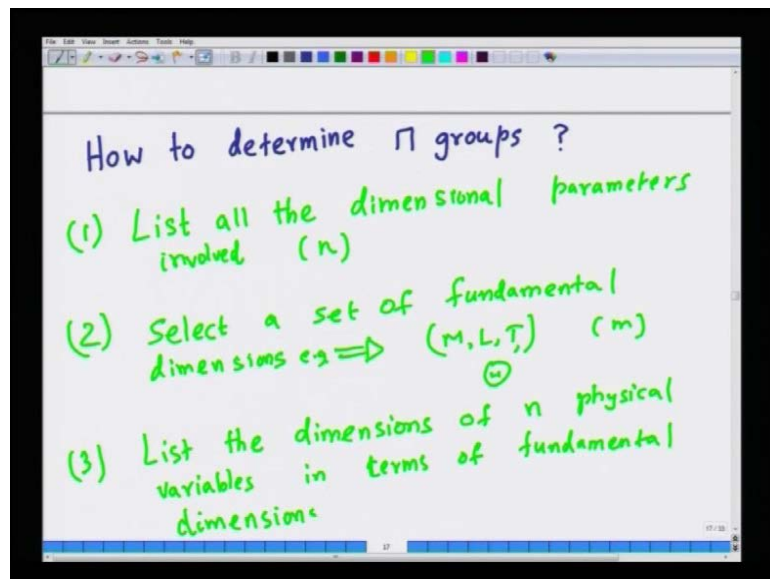 File Edit View Insert Actions Tools Help
How to determine Π groups ?
(1) List all the dimensional parameters
involved (n)
(2) Select a set of fundamental
dimensions e.g ⇒ (M, L, T,) (m)
(3) List the dimensions of n physical
variables in terms of fundamental
dimensions
17